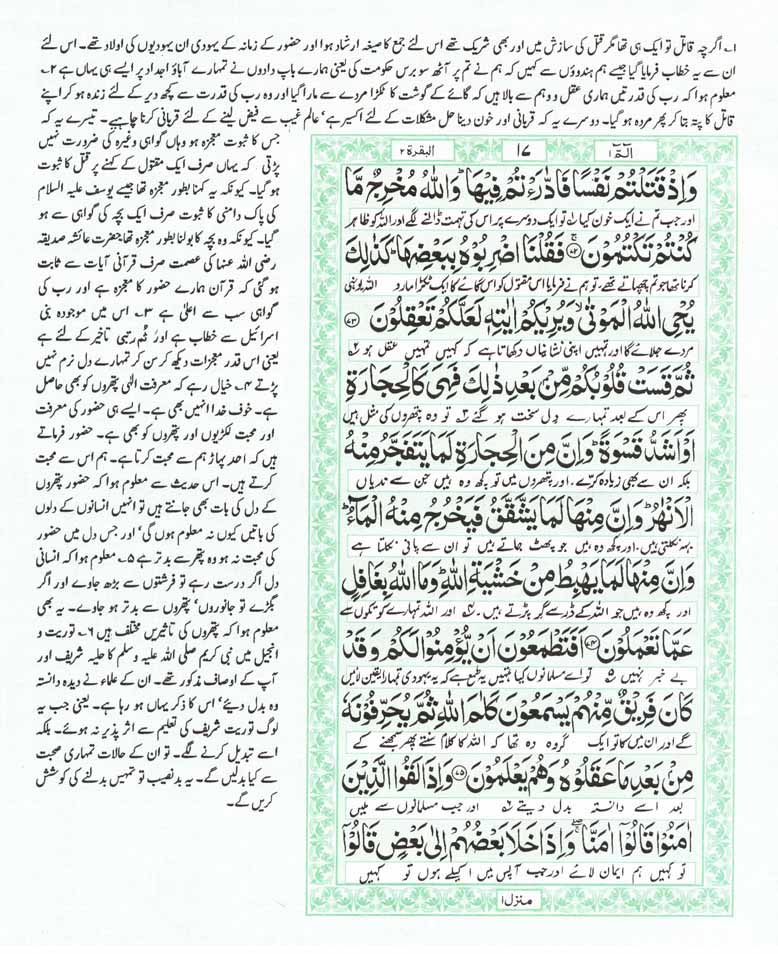 ۱؎ اگرچہ قاتل تو ایک ہی تھا مگر قتل کی سازش میں اور بھی شریک تھے اس لئے جمع کا صیغہ ارشاد ہوا اور حضور کے زمانہ کے یہودی ان یہودیوں کی اولاد تھے۔ اس لئے
ان سے یہ خطاب فرمایا گیا جیسے ہم ہندوؤں سے کہیں کہ ہم نے تم پر آٹھ سو برس حکومت کی یعنی ہمارے باپ دادوں نے تمہارے آباؤ اجداد پر ایسے ہی یہاں ہے ۲؎
معلوم ہوا کہ رب کی قدرتیں ہماری عقل و وہم سے بالا ہیں کہ گائے کے گوشت کا ٹکڑا مردے سے مارا گیا اور وہ رب کی قدرت سے کچھ دیر کے لئے زندہ ہو کر اپنے
قاتل کا پتہ بتا کر پھر مردہ ہو گیا۔ دوسرے یہ کہ قربانی اور خون دینا حل مشکلات کے لئے اکسیر ہے‘ عالم غیب سے فیض لینے کے لئے قربانی کرنا چاہیے۔ تیسرے یہ کہ
جس کا ثبوت معجزہ ہو وہاں گواہی وغیرہ کی ضرورت نہیں
پڑتی‘ کہ یہاں صرف ایک مقتول کے کہنے پر قتل کا ثبوت
ہو گیا۔ کیونکہ یہ کہنا بطور معجزہ تھا جیسے یوسف علیہ السلام
کی پاک دامنی کا ثبوت صرف ایک بچہ کی گواہی سے ہو
گیا۔ کیونکہ وہ بچہ کا بولنا بطور معجزہ تھا‘ حضرت عائشہ صدیقہ
رضی اللہ عنہا کی عصمت صرف قرآنی آیات سے ثابت
ہو گئی کہ قرآن ہمارے حضور کا معجزہ ہے اور رب کی
گواہی سب سے اعلیٰ ہے ۳؎ اس میں موجودہ بنی
اسرائیل سے خطاب ہے اور ثُمّ رتبی تاخیر کے لئے ہے
یعنی اس قدر معجزات دیکھ کر سن کر تمہارے دل نرم نہیں
پڑتے ۴؎ خیال رہے کہ معرفت الٰہی پتھروں کو بھی حاصل
ہے۔ خوف خدا انہیں بھی ہے۔ ایسے ہی حضور کی معرفت
اور محبت لکڑیوں اور پتھروں کو بھی ہے۔ حضور فرماتے
ہیں کہ احد پہاڑ ہم سے محبت کرتا ہے۔ ہم اس سے محبت
کرتے ہیں۔ اس حدیث سے معلوم ہوا کہ حضور پتھروں
کے دل کی بات بھی جانتے ہیں تو انہیں انسانوں کے دلوں
کی باتیں کیوں نہ معلوم ہوں گی‘ اور جس دل میں حضور
کی محبت نہ ہو وہ پتھر سے بدتر ہے ۵؎ معلوم ہوا کہ انسانی
دل اگر درست رہے تو فرشتوں سے بڑھ جاوے اور اگر
بگڑے تو جانوروں‘ پتھروں سے بدتر ہو جاوے۔ یہ بھی
معلوم ہوا کہ پتھروں کی تاثیریں مختلف ہیں ۶؎ توریت و
انجیل میں نبی کریم صلی اللہ علیہ وسلم کا حلیہ شریف اور
آپ کے اوصاف مذکور تھے۔ ان کے علماء نے دیدہ دانستہ
وہ بدل دیئے‘ اس کا ذکر یہاں ہو رہا ہے۔ یعنی جب یہ
لوگ توریت شریف کی تعلیم سے اثر پذیر نہ ہوئے۔ بلکہ
اسے تبدیل کرنے لگے۔ تو ان کے حالات تمہاری صحبت
سے کیا بدلیں گے۔ یہ بدنصیب تو تمہیں بدلنے کی کوشش
کریں گے۔
الٓمّٓ ۱ ۱۷ البقرۃ ۲
وَاِذْ قَتَلْتُمْ نَفْسًا فَادّٰرَءْتُمْ فِيْهَا ؕ وَاللّٰهُ مُخْرِجٌ مَّا
اور جب تم نے ایک خون کیا ۱؎ تو ایک دوسرے پر اس کی تہمت ڈالنے لگے اور اللہ کو ظاہر
كُنْتُمْ تَكْتُمُوْنَ ﴿۷۲﴾ۚ فَقُلْنَا اضْرِبُوْهُ بِبَعْضِهَا ؕ كَذٰلِكَ
کرنا تھا جو تم چھپاتے تھے۔ تو ہم نے فرمایا اس مقتول کو اس گائے کا ایک ٹکڑا مارو اللہ یونہی
يُحْيِ اللّٰهُ الْمَوْتٰى ۙ وَيُرِيْكُمْ اٰيٰتِهٖ لَعَلَّكُمْ تَعْقِلُوْنَ ﴿۷۳﴾
مردے جلائے گا اور تمہیں اپنی نشانیاں دکھاتا ہے کہ کہیں تمہیں عقل ہو ۲؎
ثُمَّ قَسَتْ قُلُوْبُكُمْ مِّنْۢ بَعْدِ ذٰلِكَ فَهِيَ كَالْحِجَارَةِ
پھر اس کے بعد تمہارے دل سخت ہو گئے ۳؎ تو وہ پتھروں کی مثل ہیں
اَوْ اَشَدُّ قَسْوَةً ؕ وَاِنَّ مِنَ الْحِجَارَةِ لَمَا يَتَفَجَّرُ مِنْهُ
بلکہ ان سے بھی زیادہ کرّے اور پتھروں میں تو کچھ وہ ہیں جن سے ندیاں
الْاَنْهٰرُ ؕ وَاِنَّ مِنْهَا لَمَا يَشَّقَّقُ فَيَخْرُجُ مِنْهُ الْمَآءُ ؕ
بہہ نکلتی ہیں۔ اور کچھ وہ ہیں جو پھٹ جاتے ہیں تو ان سے پانی نکلتا ہے
وَاِنَّ مِنْهَا لَمَا يَهْبِطُ مِنْ خَشْيَةِ اللّٰهِ ؕ وَمَا اللّٰهُ بِغَافِلٍ
اور کچھ وہ ہیں جو اللہ کے ڈر سے گر پڑتے ہیں۔ ۴؎ اور اللہ تمہارے کوتکوں سے
عَمَّا تَعْمَلُوْنَ ﴿۷۴﴾ اَفَتَطْمَعُوْنَ اَنْ يُّؤْمِنُوْا لَكُمْ وَقَدْ
بے خبر نہیں ۵؎ تو اے مسلمانوں کیا تمہیں یہ طمع ہے کہ یہ یہودی تمہارا یقین لائیں
كَانَ فَرِيْقٌ مِّنْهُمْ يَسْمَعُوْنَ كَلٰمَ اللّٰهِ ثُمَّ يُحَرِّفُوْنَهٗ
گے اور ان میں کا تو ایک گروہ وہ تھا کہ اللہ کا کلام سنتے پھر سمجھنے کے
مِنْۢ بَعْدِ مَا عَقَلُوْهُ وَهُمْ يَعْلَمُوْنَ ﴿۷۵﴾ وَاِذَا لَقُوا الَّذِيْنَ
بعد اسے دانستہ بدل دیتے ۶؎ اور جب مسلمانوں سے ملیں
اٰمَنُوْا قَالُوْٓا اٰمَنَّا ۖۚ وَاِذَا خَلَا بَعْضُهُمْ اِلٰى بَعْضٍ قَالُوْٓا
تو کہیں ہم ایمان لائے اور جب آپس میں اکیلے ہوں تو کہیں
منزل ۱